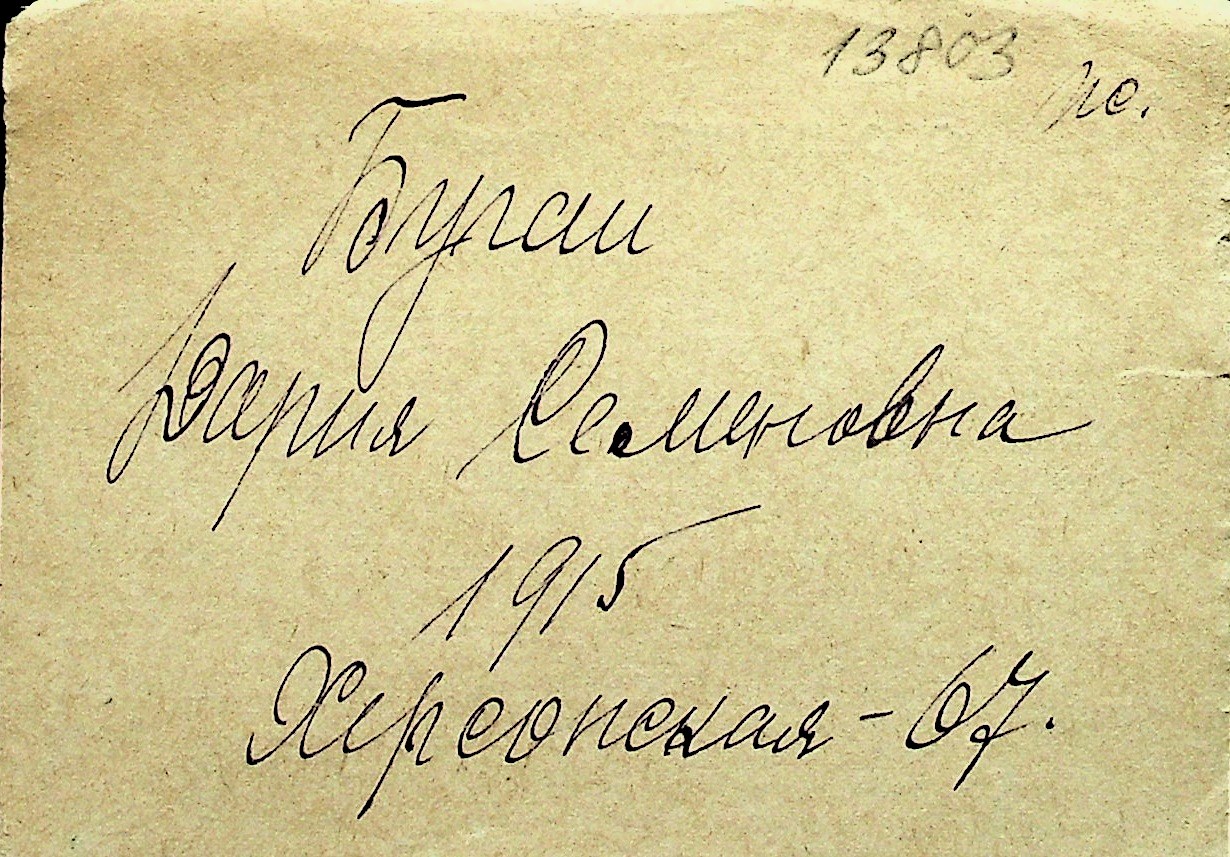 13803
Бугаи
Дария Семеновна
1915
Херсонская - 67.